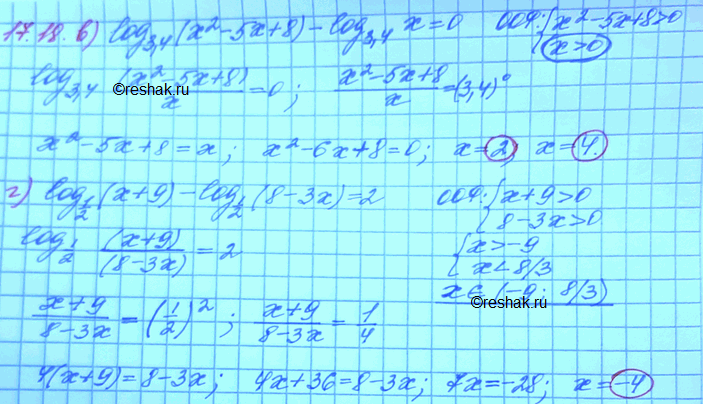 17.18. в) log₃,₄(x²-5x+8)-log₃,₄ x=0 ООФ: {x²-5x+8>0
{x>0
log₃,₄ (x²-5x+8)/x =0; (x²-5x+8)/x =(3,4)⁰
©reshak.ru
x²-5x+8=x; x²-6x+8=0; x=2, x=4
г) log₁/₂(x+9)-log₁/₂(8-3x)=2 ООФ: {x+9>0
{8-3x>0
log₁/₂ (x+9)/(8-3x) = 2 {x>-9
{x<8/3
x∈(-9; 8/3)
©reshak.ru
(x+9)/(8-3x) = (1/2)²; (x+9)/(8-3x) = 1/4
4(x+9)=8-3x; 4x+36=8-3x; 7x=-28; x=-4